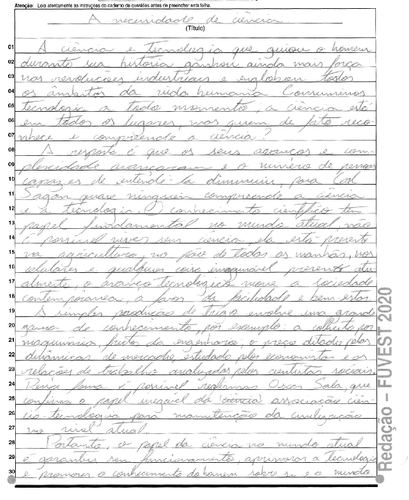 Atenção Leia atentamente as instruções do caderno de questões antes de preencher esta folha.
A necessidade de ciência
(Título)
01 A ciência e Tecnologia que guiou o homem
02 durante sua história ganhou ainda mais força
03 nas revoluções industriais e englobam todos
04 os âmbitos da vida humana Consumimos
05 tecnologia a todo momento, a ciência está
06 em todos os lugares, mas quem de fato reco-
07 nhece e compreende a ciência?
08 A resposta é que os seus avanços e com-
09 plexidade avançaram e o número de pessoas
10 capazes de entendê-la diminuiu, para Carl
11 Sagan quase ninguém compreende a ciência
12 e a tecnologia. O conhecimento científico tem
13 papel fundamental no mundo atual, não
14 é possível viver sem ciência, ela está presente
15 na agricultura, no pão de todas as manhãs, nos
16 celulares qualquer presente atu-
17 almente, o avanço tecnológico move a sociedade
18 contemporânea, a favor da facilidade e bem estar
19 A simples produção de trigo envolve uma grande
20 gama de conhecimento, por exemplo, a colheita por
21 maquinários, frutos da engenharia, o preço ditado pelas
22 dinâmicas de mercado, estudado pelos economistas e as
23 relações de trabalho analisadas pelos cientistas sociais.
24 Dessa forma é possível Oscar Sala, que
25 o papel associação ciên-
26 cia-tecnologia para manutenção da civilização
27 no nível atual.
28 Portanto, o papel da ciência no mundo atual
29 é garantir seu funcionamento, aprimorar a tecnologia
30 e promover o conhecimento do homem sobre si e o mundo
Redação – FUVEST 2020